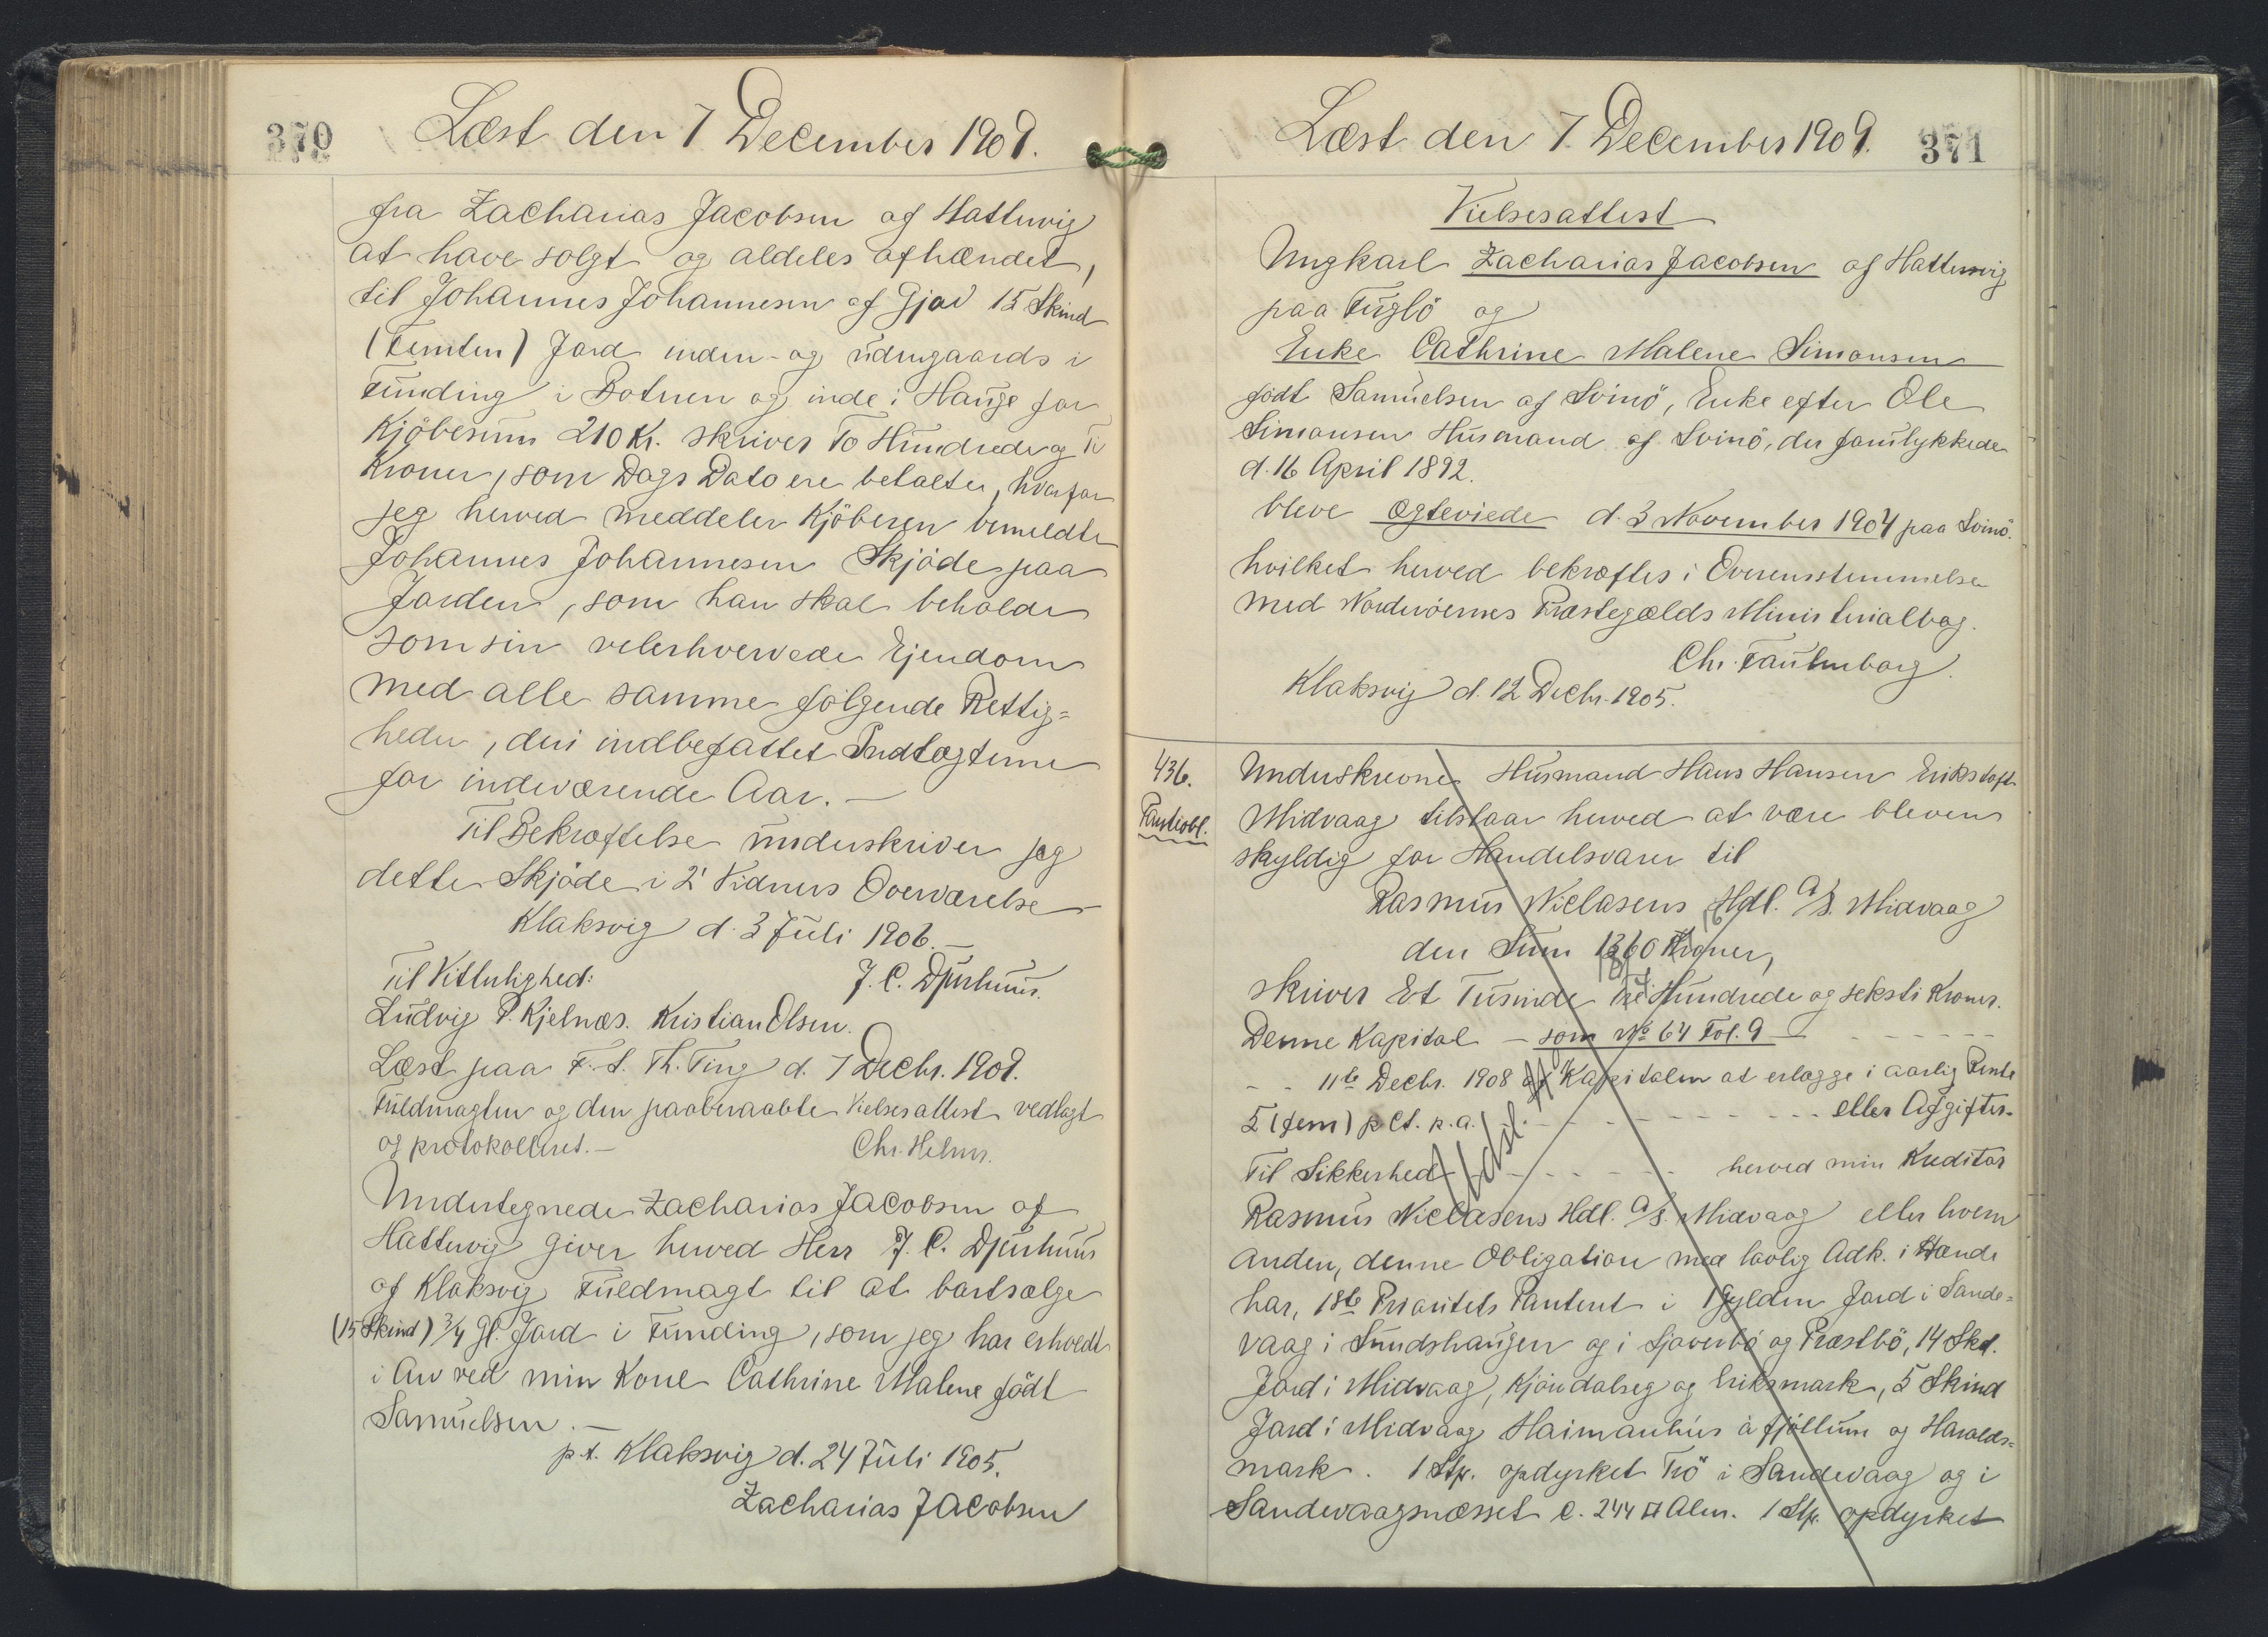 370
Læst den 7 December 1909.
fra Zacharias Jacobsen af Hattervig
at have solgt og aldeles afhændet,
til Johannes Johannesen af Gjov 15 Skind
(Femten) Jord inden- og udengaards i
Funding i Botnen og inde i Hauge for
Kjöbesum 210 Kr. skriver To Hundrede og Ti
Kroner, som Dags Dato ere betalte, hvorfor
jeg herved meddeler Kjöberen bemeldte
Johannes Johannesen Skjöde paa
Jorden, som han skal beholde
som sin velerhvervede Ejendom
med alle samme fölgende Rettig=
heder, deri indbefattet Indtægterne
for indeværende Aar. —
Til Bekræftelse underskriver jeg
dette Skjöde i 2' Vidners Overværelse
Klaksvig d. 3 Juli 1906. —
Til Vitterlighed: J. C. Djurhuus.
Ludvig P. Kjelnæs. Kristian Olsen.
Læst paa F. S. Th. Ting d. 7 Decbr. 1909.
Fuldmagten og den paaberaabte Vielsesattest vedlagt
og protokolleret. — Chr. Helms.
Undertegnede Zacharias Jacobsen af
Hattervig giver herved Herr J. C. Djurhuus
af Klaksvig Fuldmagt til at bortsælge
(15 Skind) 3/4 Gl. Jord i Funding, som jeg har erholdt
i Arv ved min Kone Cathrine Malene födt
Samuelsen. —
p.t. Klaksvig d. 24 Juli 1905.
Zacharias Jacobsen
Læst den 7. December 1909.
371
Vielsesattest
Ungkarl Zacharias Jacobsen af Hattervig
paa Fuglö og
Enke Cathrine Malene Simonsen
födt Samuelsen af Svinö, Enke efter Ole
Simonsen Husmand af Svinö, der forulykkede
d. 16 April 1892.
bleve ægteviede d. 3 November 1904 paa Svinö.
hvilket herved bekræftes i Overensstemmelse
med Norderöernes Præstegælds Ministerialbog.
Chr. Faulenborg.
Klaksvig d. 12 Decbr. 1905.
436.
Panteobl.
Underskrevne Husmand Hans Hansen Erikstoft.
Midvaag tilstaar herved at være bleven
skyldig for Handelsvarer til
Rasmus Niclasens Hdl. A/S. Midvaag
den Sum 1360 Kroner,
skriver Et Tusinde Tre Hundrede og seksti Kroner.
Denne Kapital — som No 64 Fol. 9 - - - - - -
- - 11te Decbr. 1908 af Kapitalen at erlægge i aarlig Rente
5 (fem) p Ct. p.a. - - - - - - - - - eller Afgifter.
Til Sikkerhed - - - - - - herved min Kreditor
Rasmus Niclasens Hdl. A/S. Midvaag eller hvem
anden, denne Obligation med lovlig Adk. i Hænde
har, 1ste Prioritets Panteret i 1 Gylden Jord i Sande=
vaag i Sundshaugen og i Sjoverbö og Præstbö, 14 Skd.
Jord i Midvaag, Kjöindalseg og Eriksmark, 5 Skind
Jord i Midvaag Haimanhús á fjöllum og Haralds=
mark. 1 Stk. opdyrket Trö i Sandevaag og i
Sandevaagsnæsset c. 244 □ Alen. 1 Stk. opdyrket